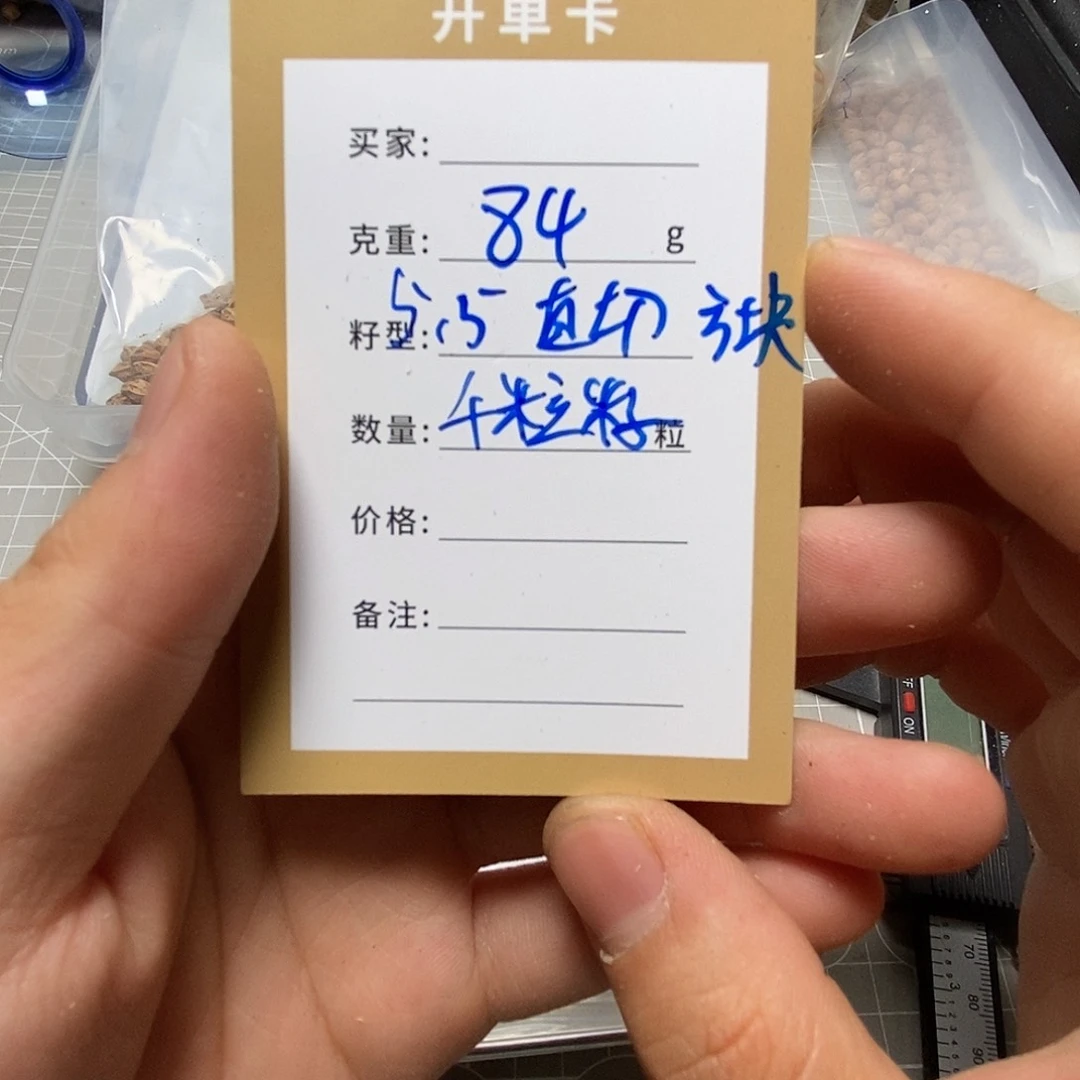 开单卡
买家:
克重: 84 g
籽型: 5.5 直切 方块
数量: 千粒籽 粒
价格:
备注:
ON
70
80
90